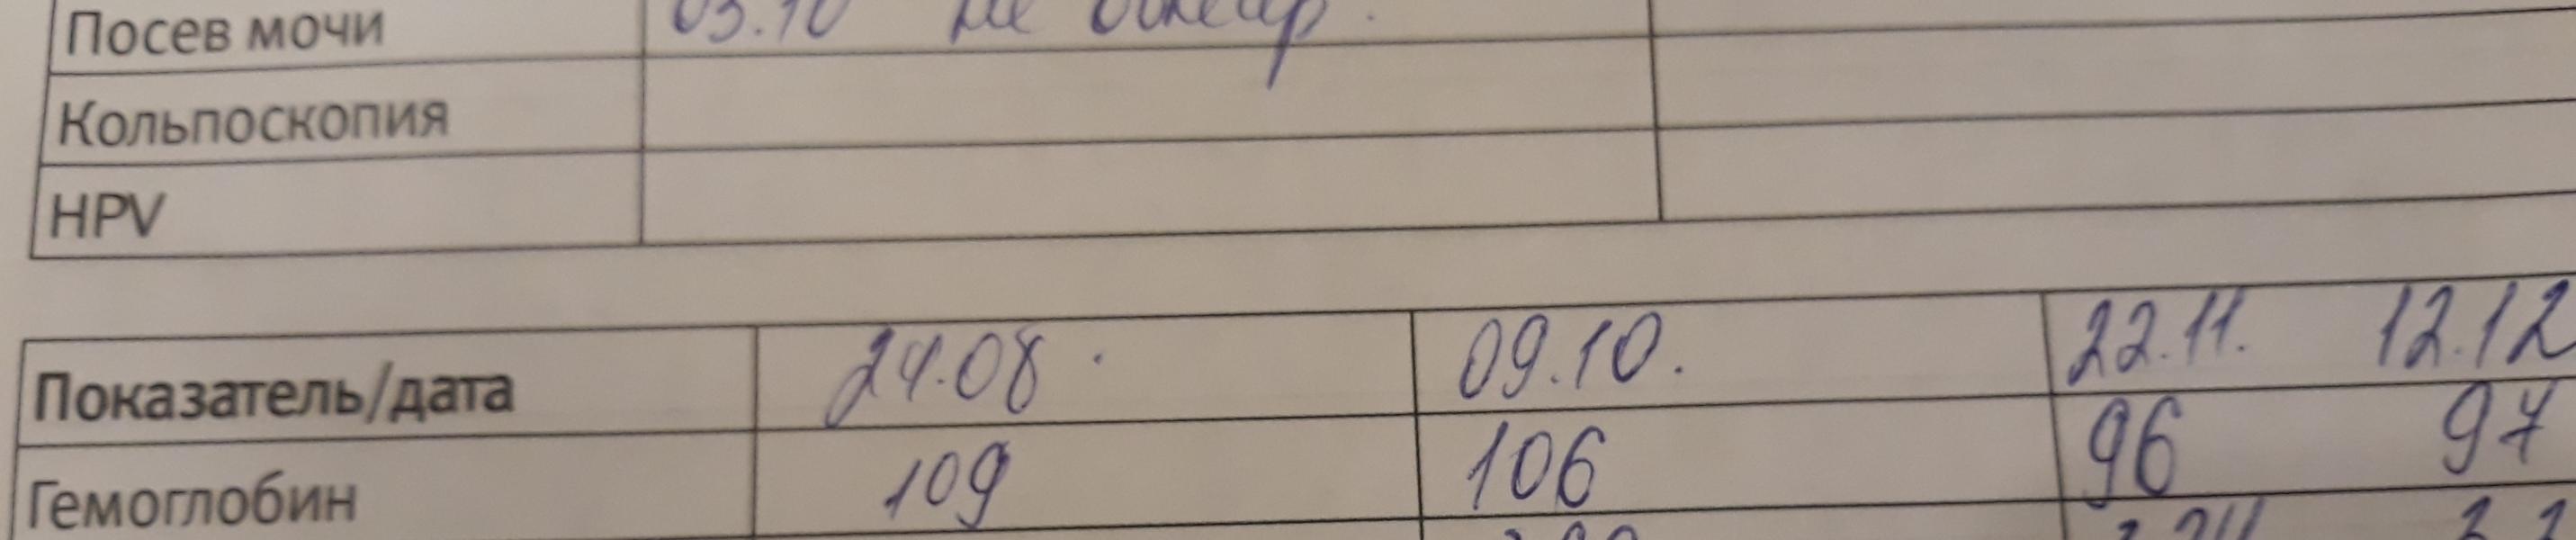 Посев мочи 03.10 не обнар.
Кольпоскопия
HPV
Показатель/дата 24.08. 09.10. 22.11. 12.12
Гемоглобин 109 106 96 97